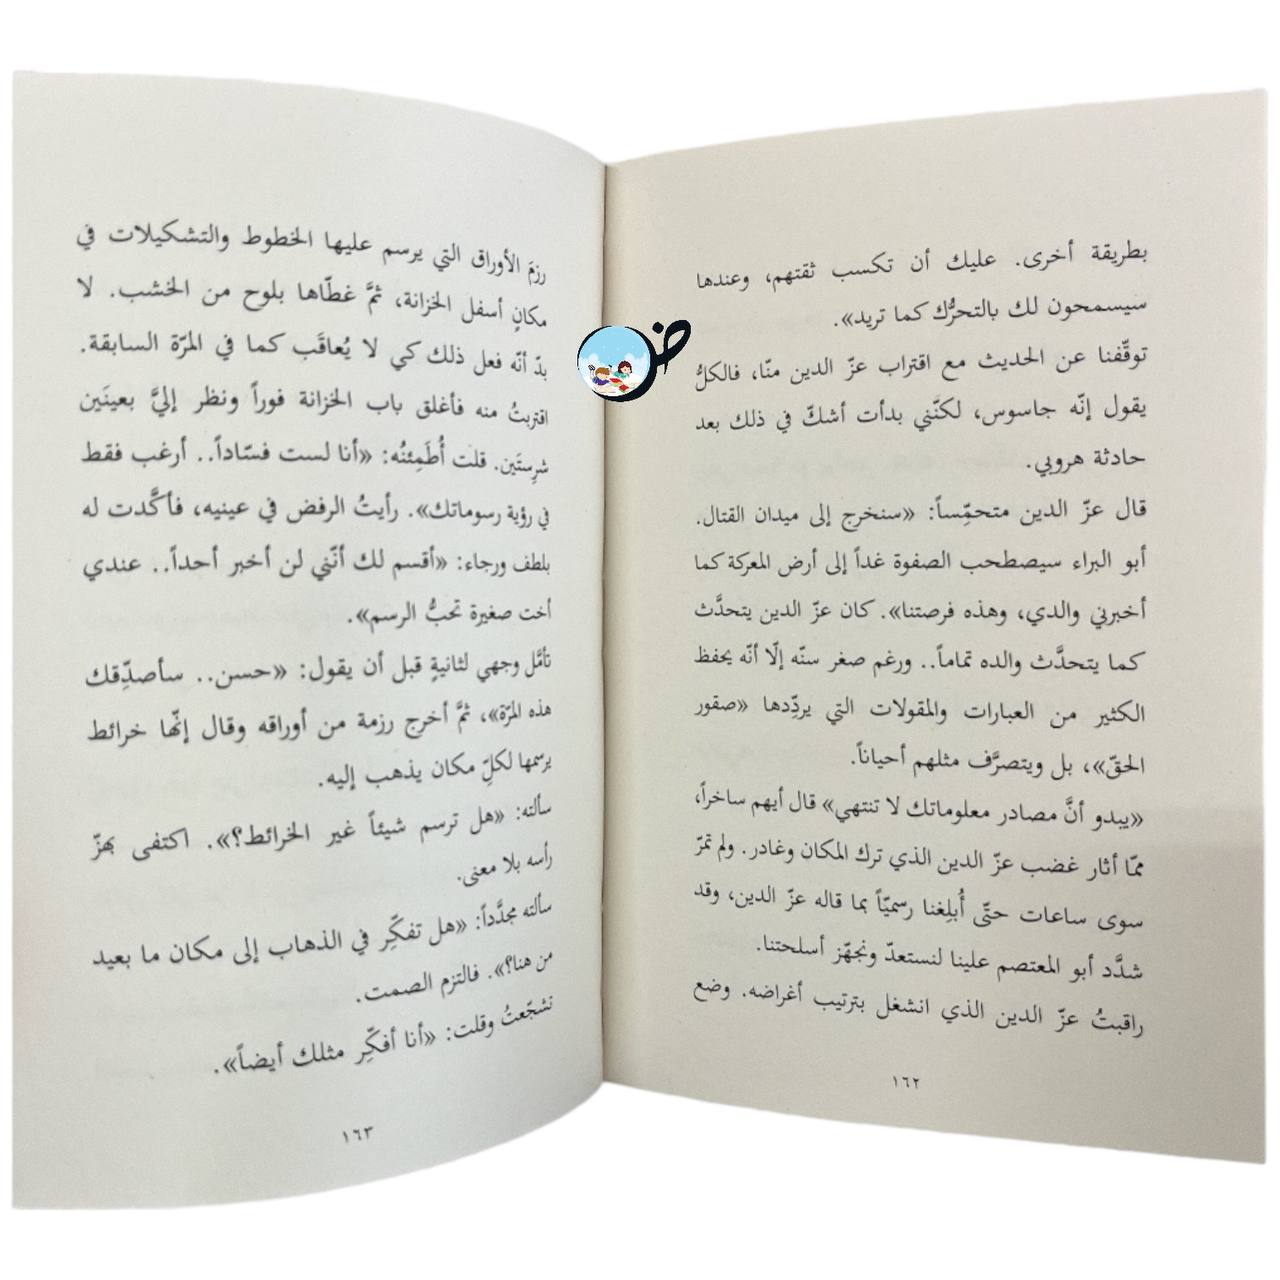 بطريقة أخرى. عليك أن تكسب ثقتهم، وعندها
سيسمحون لك بالتحرُّك كما تريد».
توقّفنا عن الحديث مع اقتراب عزّ الدين منّا، فالكلُّ
يقول إنّه جاسوس، لكنّني بدأت أشكّ في ذلك بعد
حادثة هروبي.
قال عزّ الدين متحمّساً: «سنخرج إلى ميدان القتال.
أبو البراء سيصطحب الصفوة غداً إلى أرض المعركة كما
أخبرني والدي، وهذه فرصتنا». كان عزّ الدين يتحدَّث
كما يتحدَّث والده تماماً.. ورغم صغر سنّه إلّا أنّه يحفظ
الكثير من العبارات والمقولات التي يردِّدها «صقور
الحقّ»، بل ويتصرَّف مثلهم أحياناً.
«يبدو أنَّ مصادر معلوماتك لا تنتهي» قال أيهم ساخراً،
ممّا أثار غضب عزّ الدين الذي ترك المكان وغادر. ولم تمرّ
سوى ساعات حتّى أُبلِغنا رسميّاً بما قاله عزّ الدين، وقد
شدَّد أبو المعتصم علينا لنستعدّ ونجهّز أسلحتنا.
راقبتُ عزّ الدين الذي انشغل بترتيب أغراضه. وضع
١٦٢
رزمَ الأوراق التي يرسم عليها الخطوط والتشكيلات في
مكانٍ أسفل الخزانة، ثمَّ غطّاها بلوح من الخشب. لا
بدّ أنّه فعل ذلك كي لا يُعاقَب كما في المرّة السابقة.
اقتربتُ منه فأغلق باب الخزانة فوراً ونظر إليَّ بعينَين
شرِستَين. قلت أُطَمِئنُه: «أنا لست فسّاداً.. أرغب فقط
في رؤية رسوماتك». رأيتُ الرفض في عينيه، فأكَّدت له
بلطف ورجاء: «أقسم لك أنّني لن أخبر أحداً.. عندي
أخت صغيرة تحبُّ الرسم».
تأمَّل وجهي لثانيةٍ قبل أن يقول: «حسن.. سأصدِّقك
هذه المرّة»، ثمَّ أخرج رزمة من أوراقه وقال إنّها خرائط
يرسمها لكلِّ مكان يذهب إليه.
سألته: «هل ترسم شيئاً غير الخرائط؟». اكتفى بهزّ
رأسه بلا معنى.
سألته مجدَّداً: «هل تفكِّر في الذهاب إلى مكان ما بعيد
من هنا؟». فالتزم الصمت.
تشجّعتُ وقلت: «أنا أفكِّر مثلك أيضاً».
١٦٣
ض